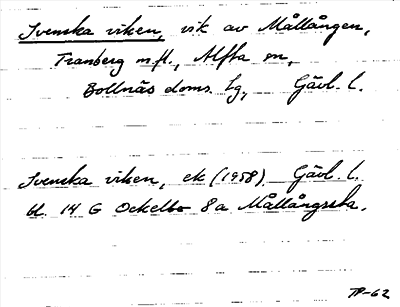 Svenska viken, vik av Mållången,
Tranberg m.fl., Alfta sn,
Bollnäs doms. lg, Gävl. l.
Svenska viken, ek (1958) Gävl. l.
bl. 14 G Ockelbo 8a Mållångssta.
TP-62